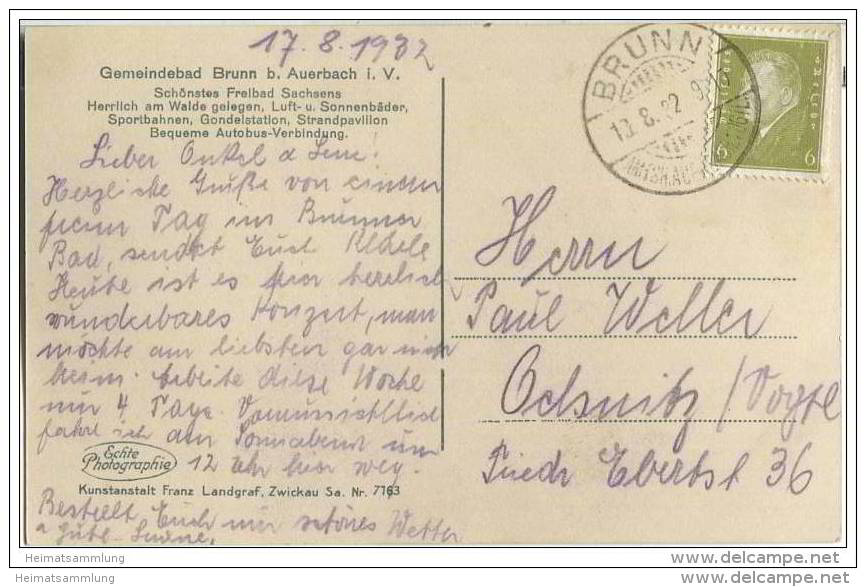 17.8.1932
Gemeindebad Brunn b. Auerbach i. V.
Schönstes Freibad Sachsens
Herrlich am Walde gelegen, Luft- u. Sonnenbäder,
Sportbahnen, Gondelstation, Strandpavillon
Bequeme Autobus-Verbindung.
Lieber Onkel
Herzliche Grüße von einem
Tag im Brunner
Bad, sendet Euch
Heute ist es hier herrlich
wunderbares Konzert, man
möchte am liebsten gar nich
heim. Arbeite diese Woche
nur 4 Tage. Voraussichtlich
fahre ich am Sonnabend um
12 Uhr hier weg.
Echte
Photographie
Kunstanstalt Franz Landgraf, Zwickau Sa. Nr. 7163
Bestellt Euch nur schönes Wetter
BRUNN
8.32
6 6
Herrn
Paul Weller
Oelsnitz / Vogtl
Friedr Ebertst 36
Heimatsammlung
Heimatsammlung
www.delcampe.net